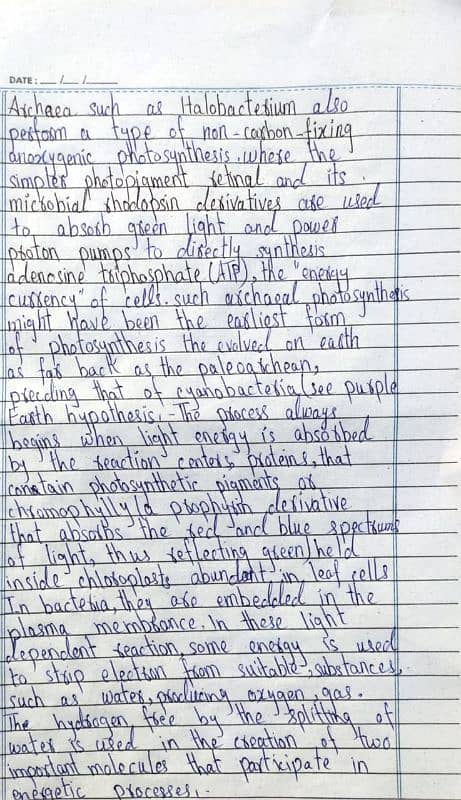 DATE: __/__/____
Archaea such as Halobacterium also
perform a type of non-carbon-fixing
anoxygenic photosynthesis. where the
simpler photopigment retinal and its
microbial rhodopsin derivatives are used
to absorb green light and power
proton pumps to directly synthesis
adenosine triphosphate (ATP), the "energy
currency" of cells. such archaeal photosynthesis
might have been the earliest form
of photosynthesis the evolved on earth
as far back as the paleoarchean,
preceding that of cyanobacteria (see purple
Earth hypothesis. - The process always
begins when light energy is absorbed
by the reaction centers, proteins, that
contain photosynthetic pigments or
that absorbs the red and blue spectrums
of light, thus reflecting green) held
inside chloroplasts abundant in leaf cells
In bacteria, they are embedded in the
plasma membrance. In these light
dependent reaction, some energy is used
to strip electron from suitable substances,
such as water, producing oxygen gas.
The hydrogen free by the splitting of
water is used in the creation of two
important molecules that participate in
energetic processes.